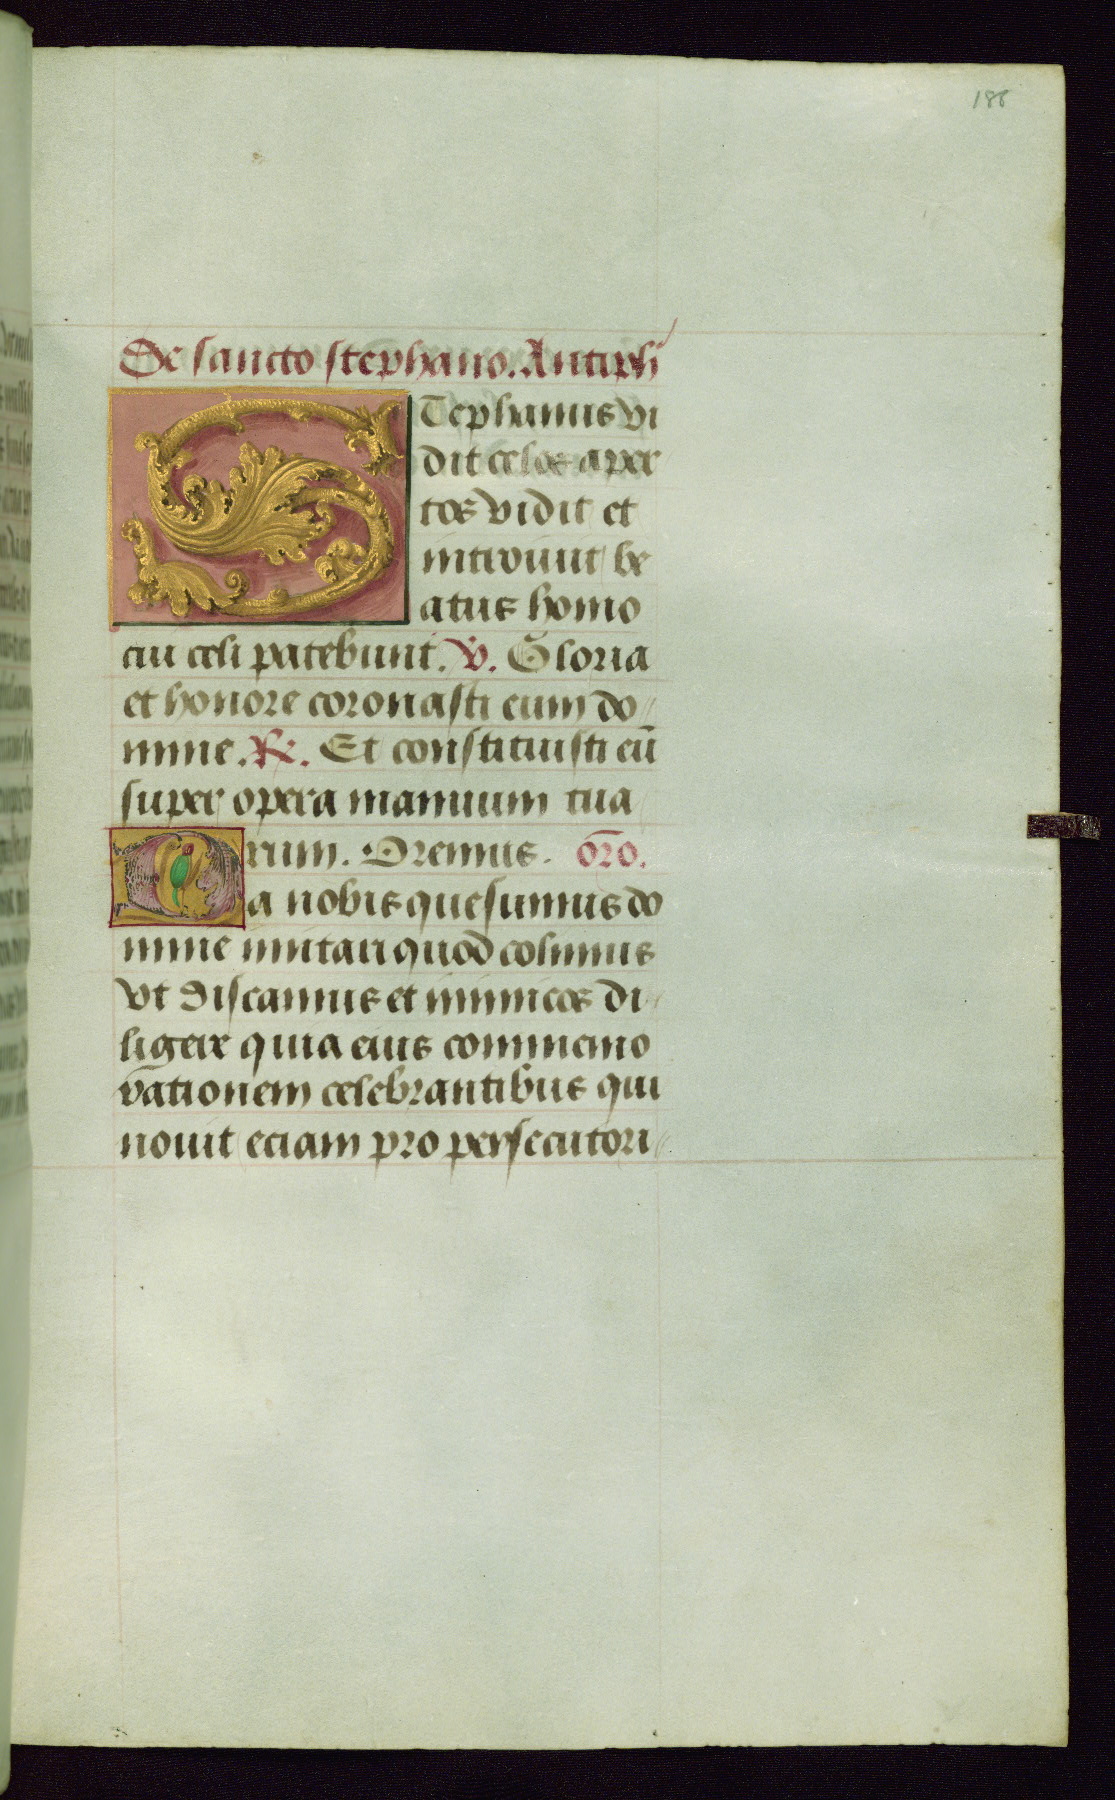 186
De sancto stephano. Antiph
STephanus vi
dit celos aper
tos vidit et
introiuit be
atus homo
cui celi patebunt. V. Gloria
et honore coronasti eum do
mine. R. Et constituisti eū
super opera manuum tua
rum. Oremus. oro.
Da nobis quesumus do
mine imitari quod colimus
vt discamus et inimicos di
ligere quia eius commemo
rationem celebrantibus qui
nouit eciam pro persecutori